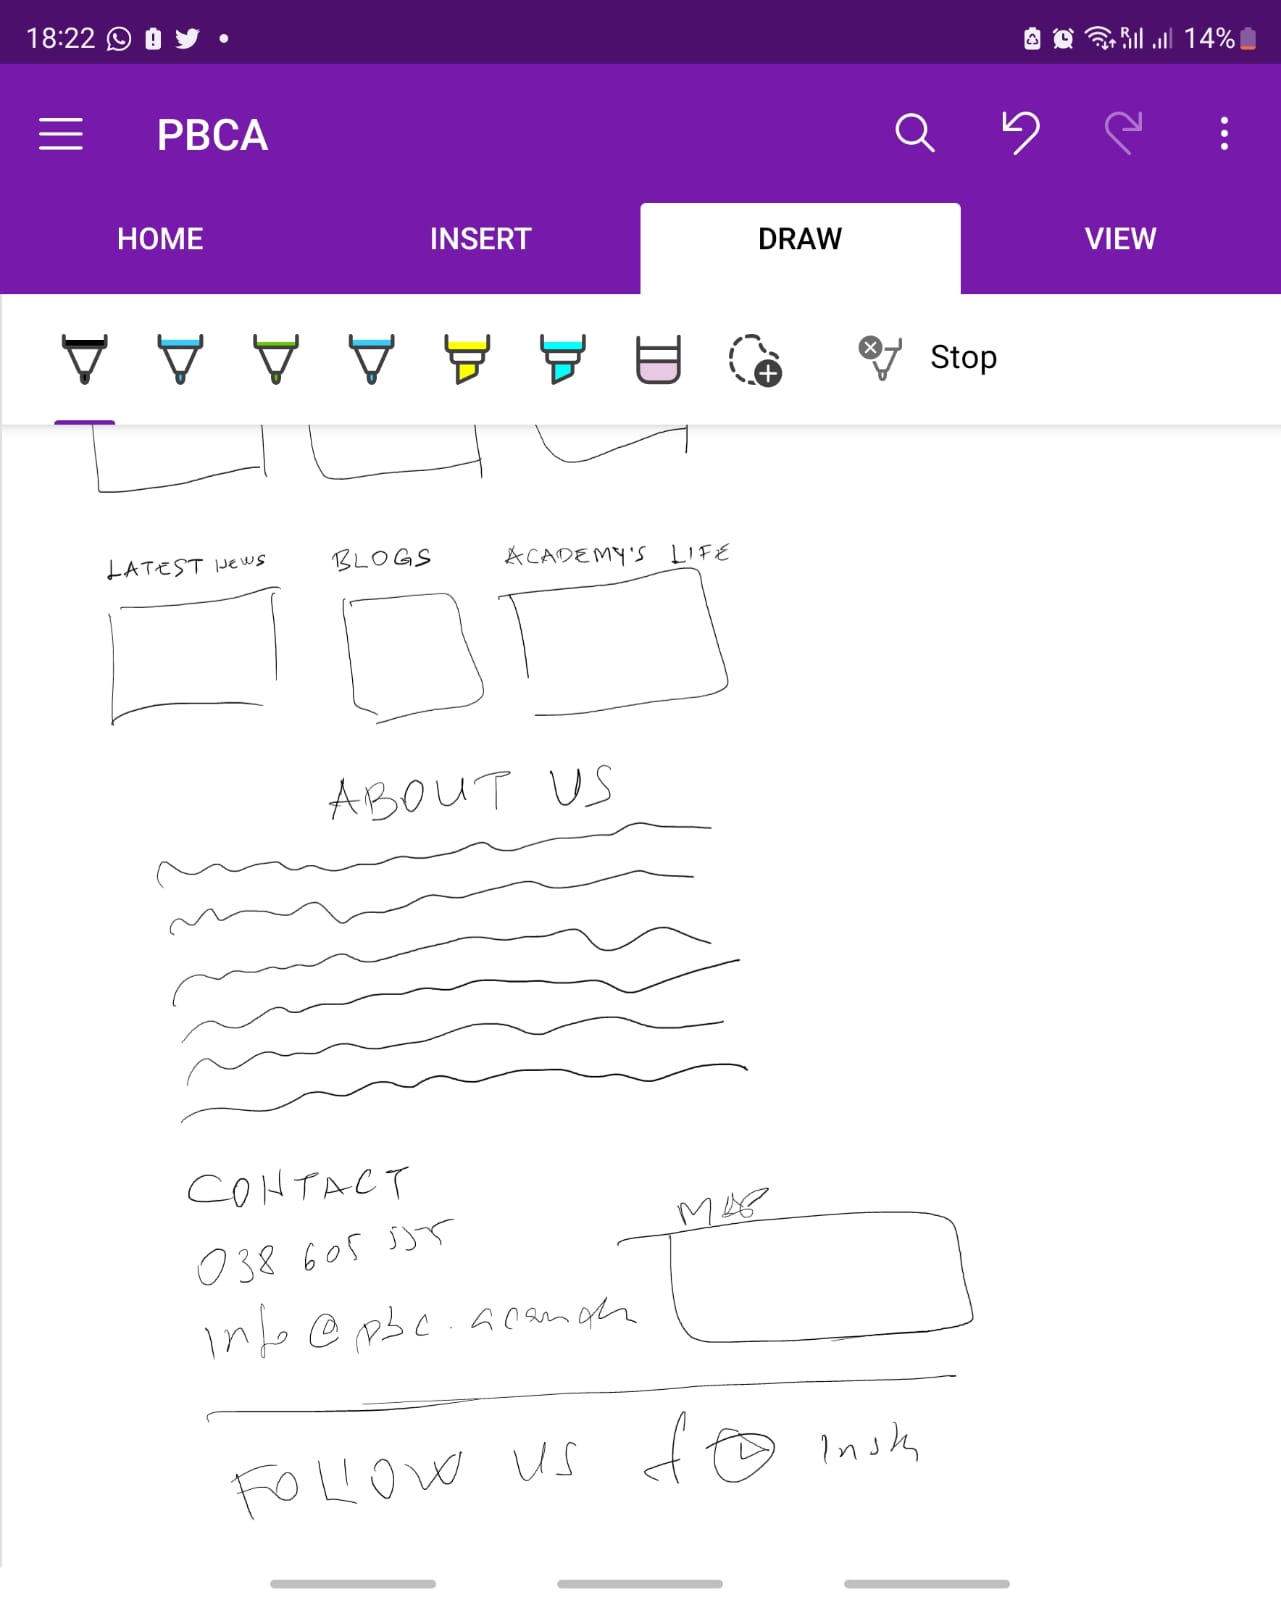 18:22 14%
PBCA
HOME INSERT DRAW VIEW
Stop
LATEST NEWS BLOGS ACADEMY'S LIFE
ABOUT US
CONTACT
MAP
038 605 555
info@pbc.
FOLLOW US f Insta